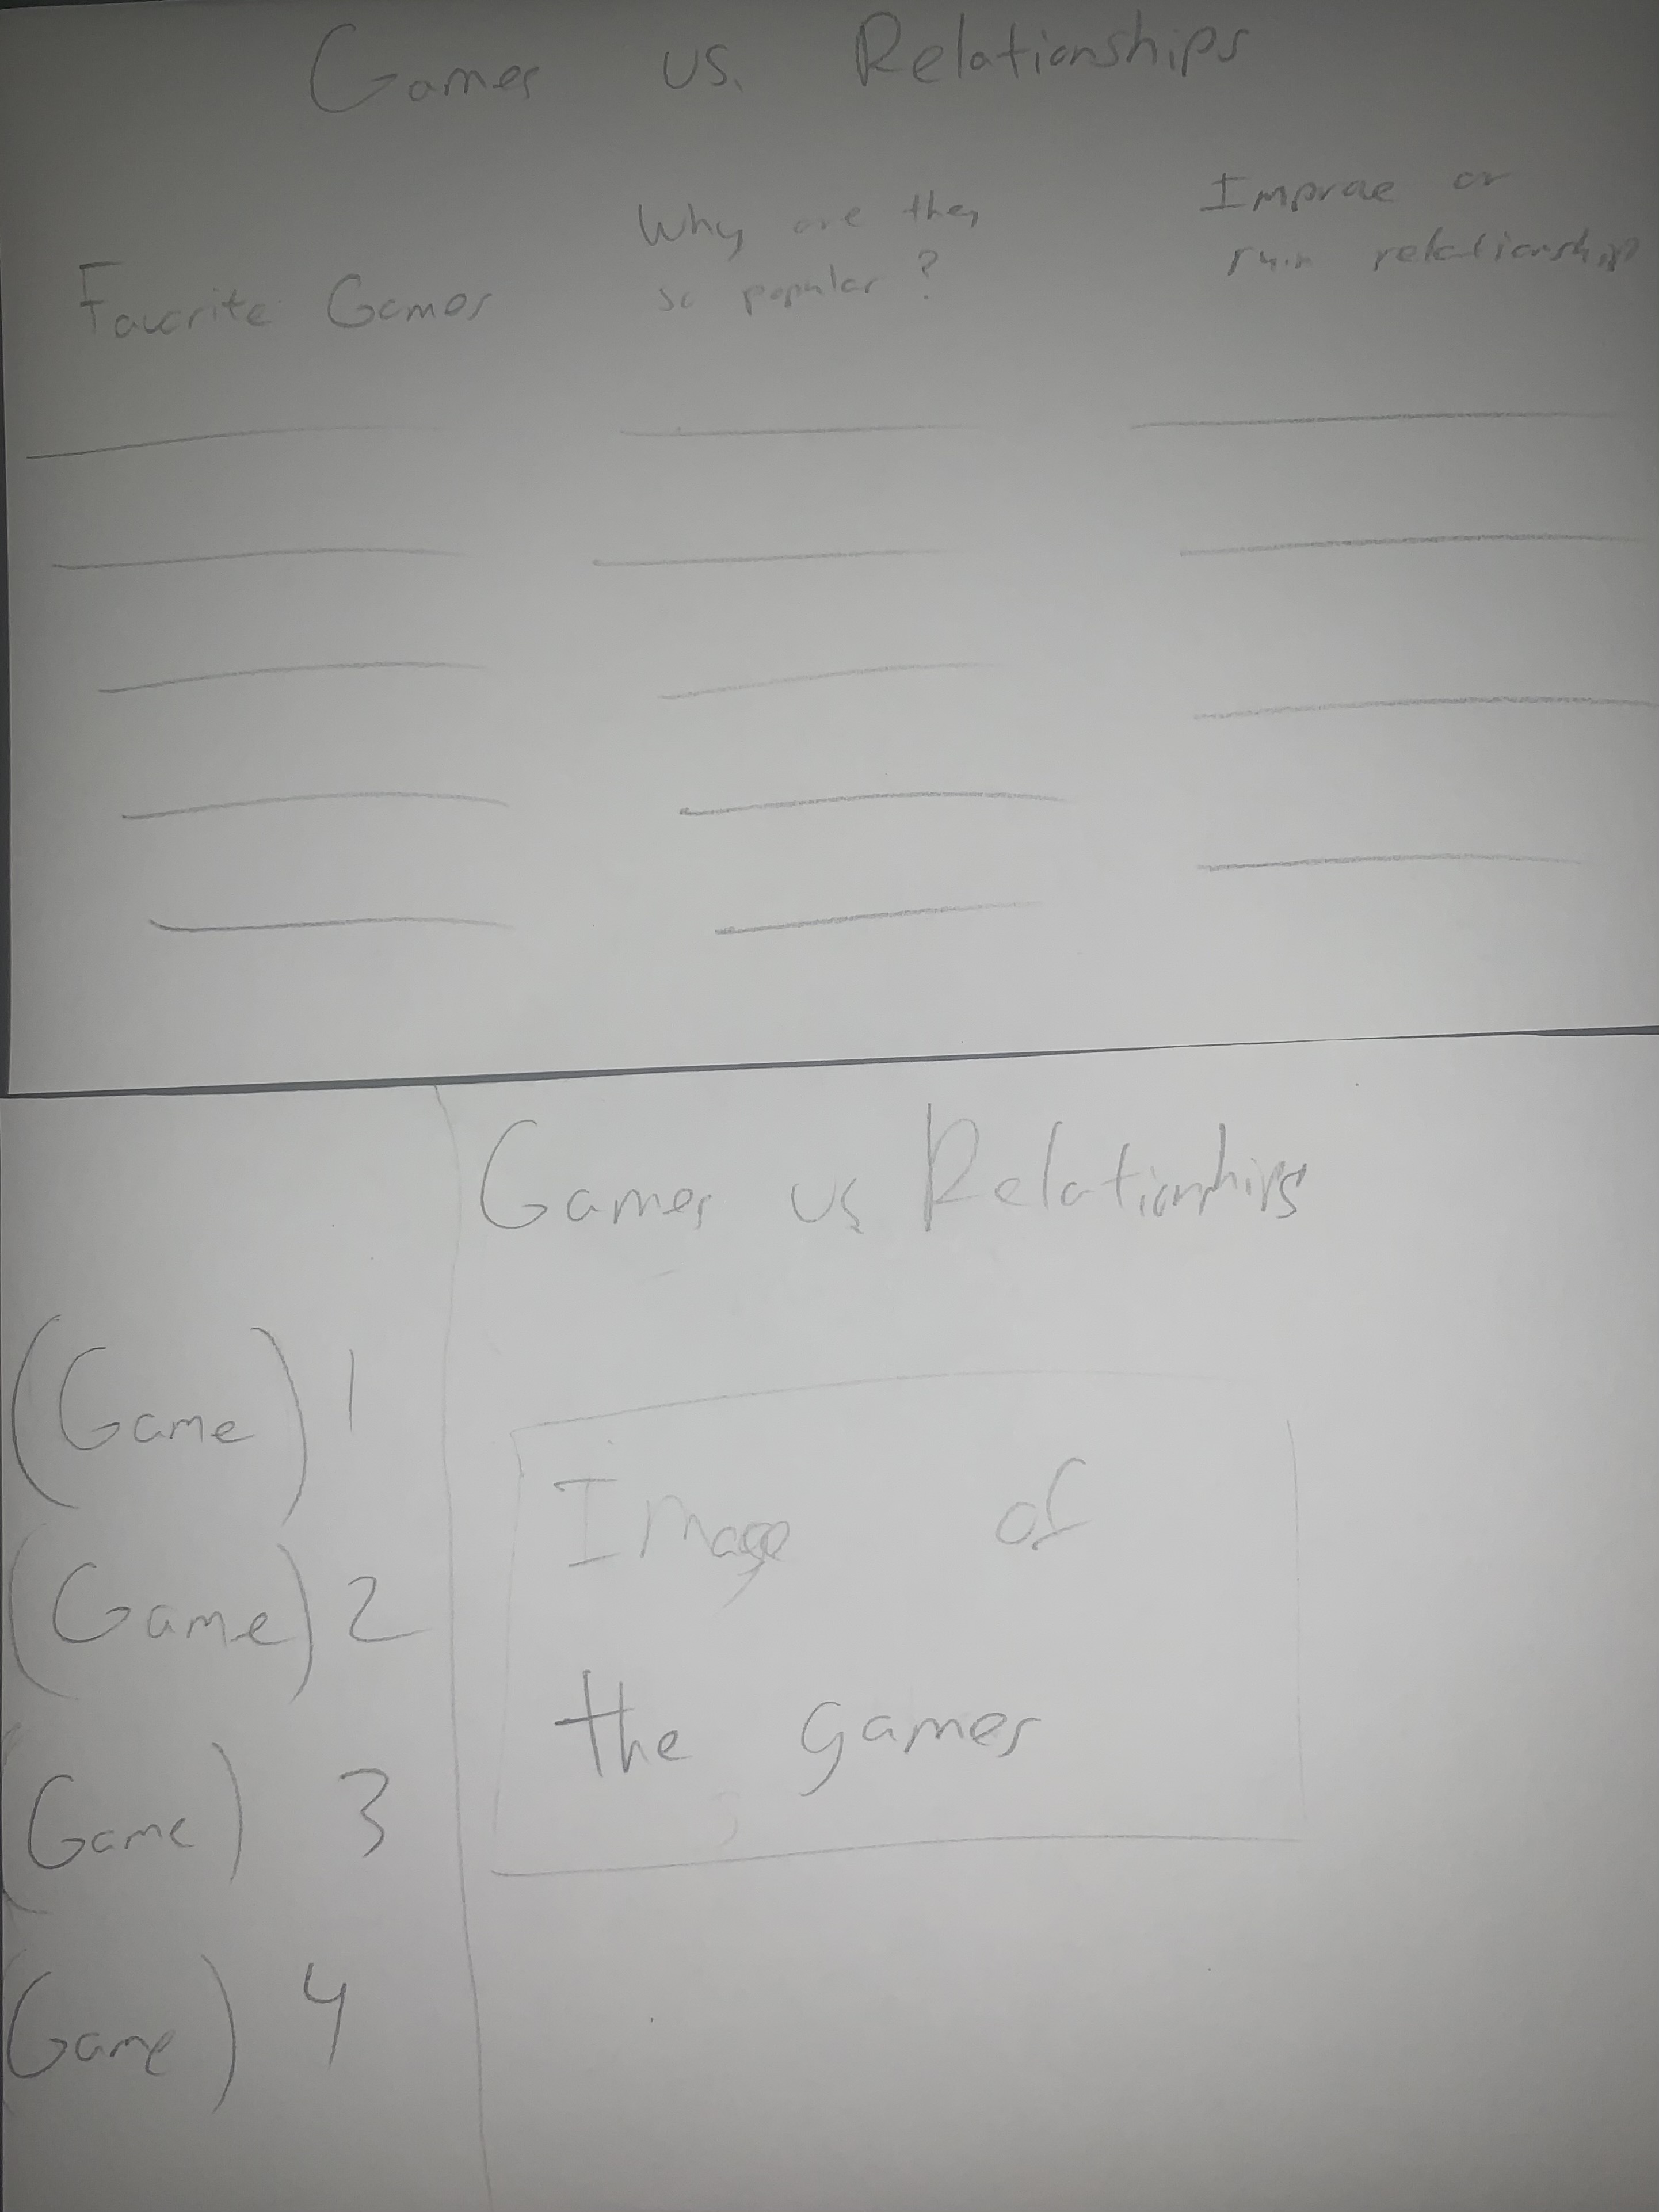 Games vs. Relationships
Why are they
so popular?
Improve or
ruin relationship
Favorite Games
Games vs Relationships
(Game) 1
(Game) 2
(Game) 3
(Game) 4
Image of
the games